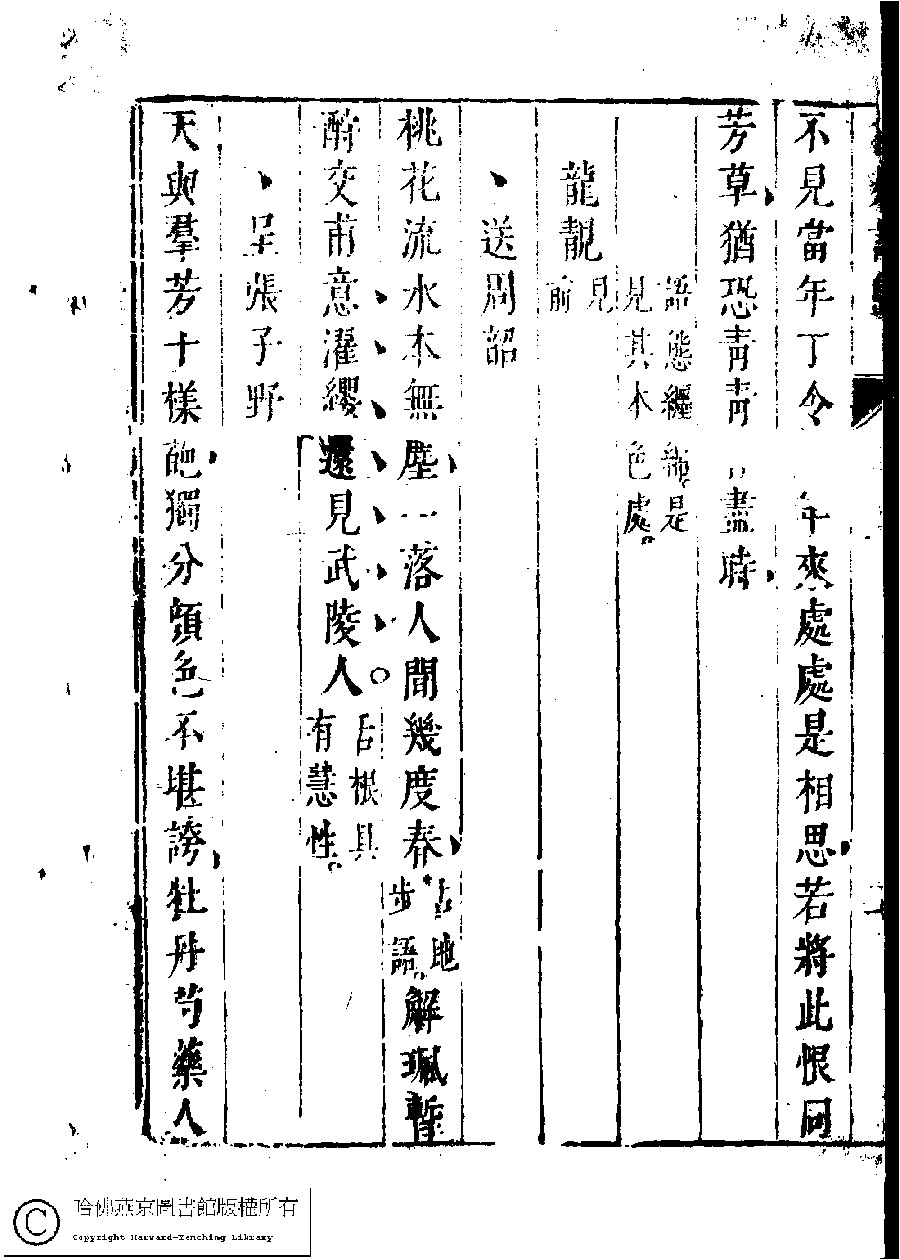 不見當年丁令 年來處處是相思若將此恨同
芳草猶恐青青 盡時
語態纏綿是
見其本色處
龍靚 見前
送周韶
桃花流水本無塵一落人間幾度春 占地步語 解珮暫
酧交甫意濯纓還見武陵人 占根具有慧性
呈張子野
天與羣芳十様葩獨分顔色不堪誇牡丹芍藥人
哈佛燕京圖書館版權所有
Copyright Harvard-Yenching Library